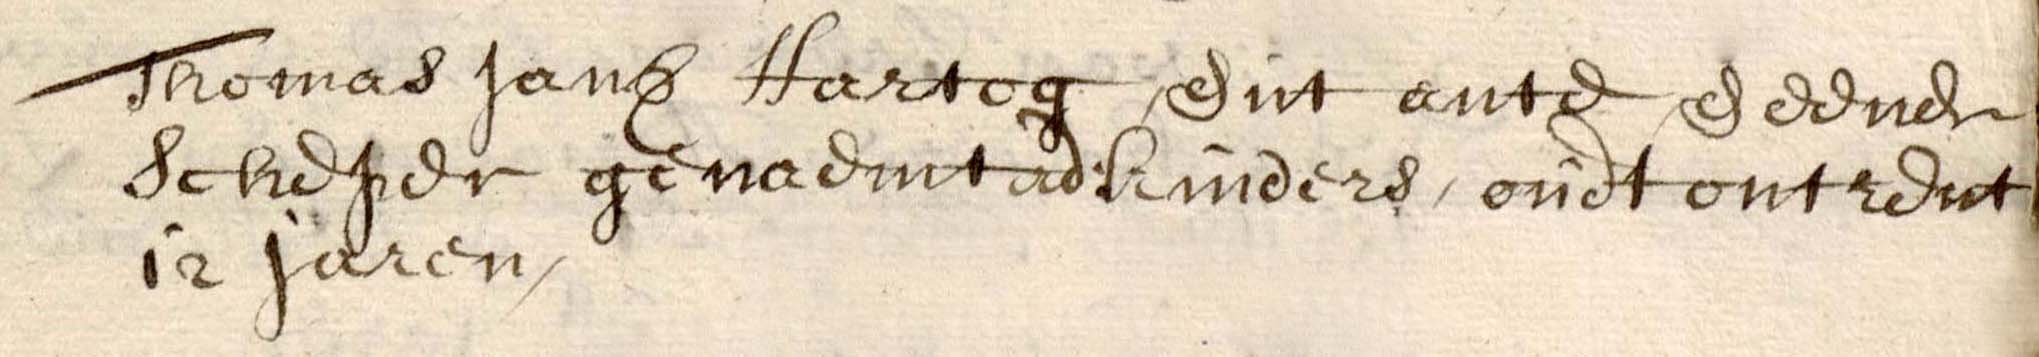 Thomas Jansz Hartog, eint ante Eeener
Scheper genaemt adkinders, oudt ontrent
12 jaren,